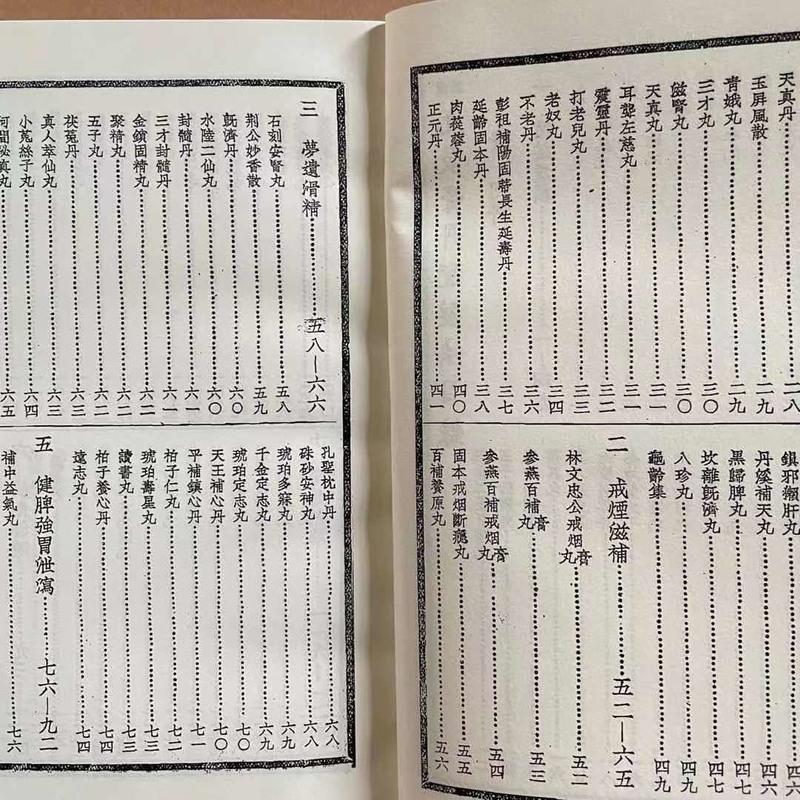 天真丹……二八
玉屏風散……二九
青娥丸……二九
三才丸……三〇
滋腎丸……三〇
天真丸……三一
耳聾左慈丸……三一
震靈丹……三二
打老兒丸……三三
老奴丸……三四
不老丹……三六
彭祖補陽固蒂長生延壽丹……三七
延齡固本丹……三八
肉蓯蓉丸……四〇
正元丹……四一
鎮邪獺肝丸……四六
丹溪補天丸……四六
黑歸脾丸……四七
坎離既濟丸……四七
八珍丸……四九
龜齡集……四九
二 戒煙滋補……五二—六五
林文忠公戒烟膏丸……五二
參燕百補膏丸……五三
參燕百補戒烟膏丸……五四
固本戒烟斷癮丸……五五
百補養原丸……五六
三 夢遺滑精……五八—六六
石刻安腎丸……五八
荆公妙香散……五九
既濟丹……六〇
水陸二仙丸……六〇
封髓丹……六一
三才封髓丹……六一
金鎖固精丸……六二
聚精丸……六二
五子丸……六二
茯菟丹……六三
真人萃仙丸……六三
小菟絲子丸……六四
河間秘真丸……六五
孔聖枕中丹……六八
硃砂安神丸……六八
琥珀多寐丸……六九
千金定志丸……六九
琥珀定志丸……七〇
天王補心丹……七〇
平補鎮心丹……七一
柏子仁丸……七二
琥珀壽星丸……七三
讀書丸……七三
柏子養心丹……七四
遠志丸……七四
五 健脾強胃泄瀉……七六—九二
補中益氣丸……七六